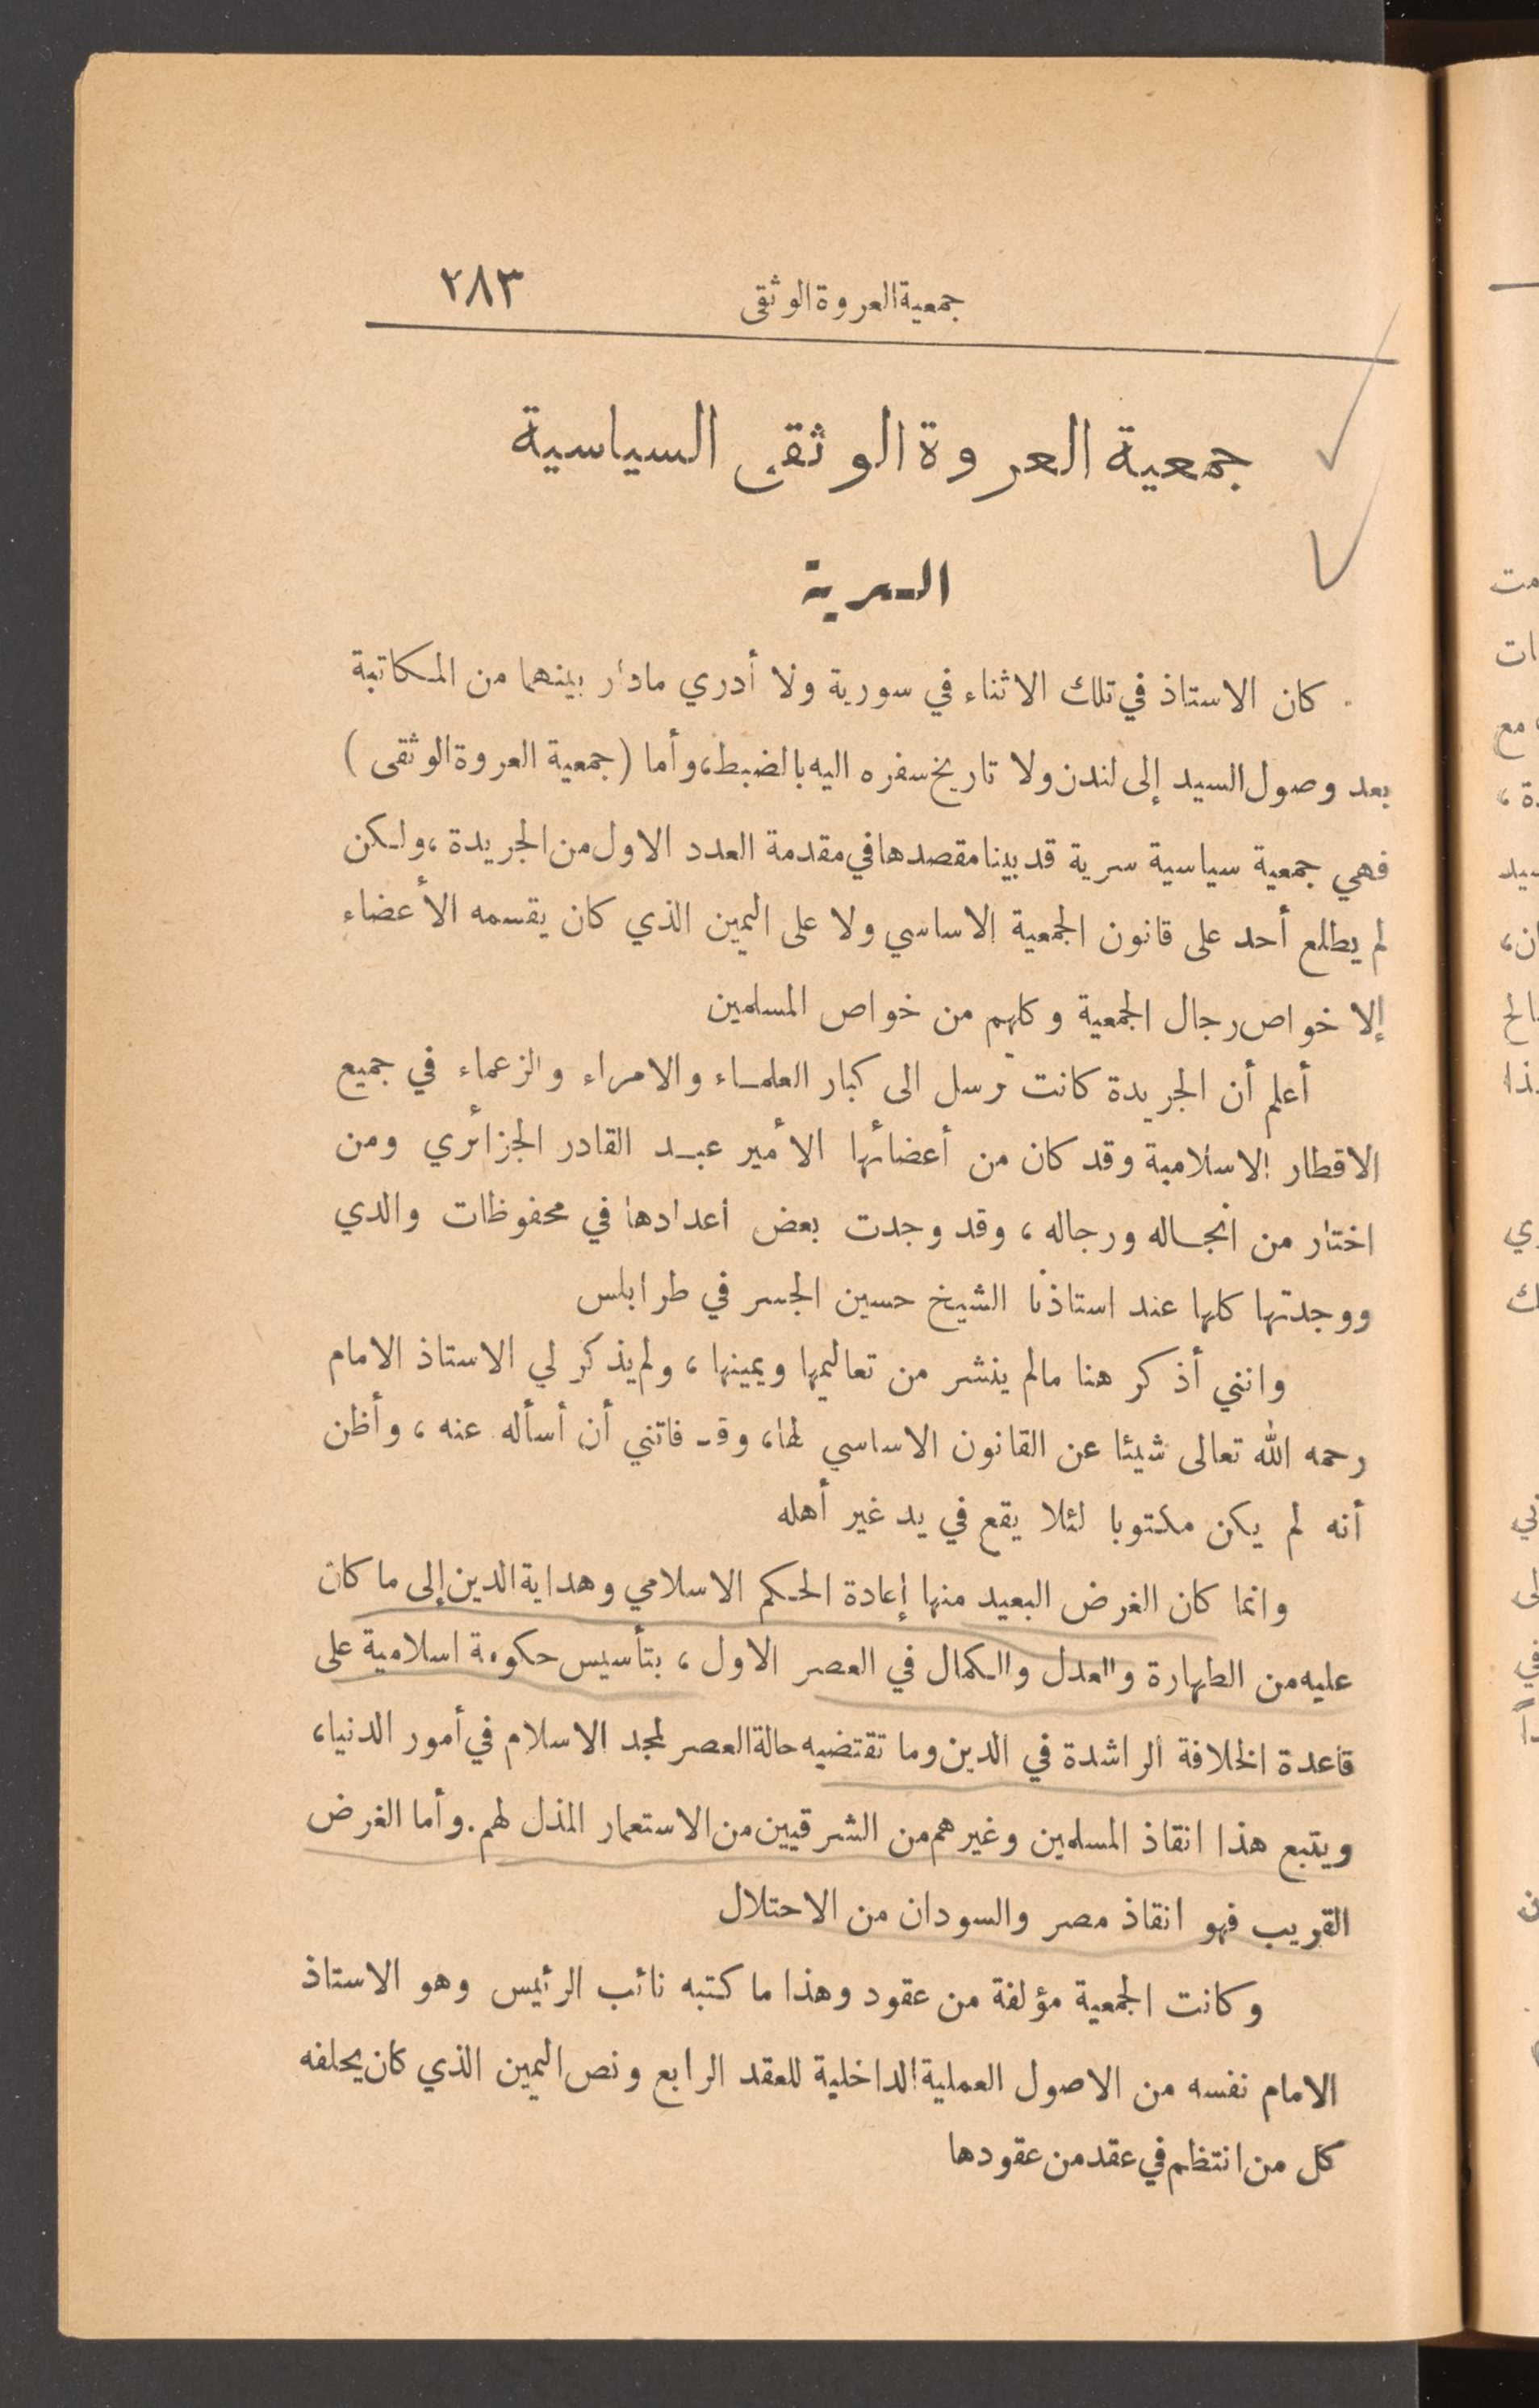 جمعية العروة الوثقى ٢٨٣
جمعية العروة الوثقى السياسية
السرية
كان الاستاذ في تلك الاثناء في سورية ولا أدري مادار بينهما من المكاتبة
بعد وصول السيد إلى لندن ولا تاريخ سفره اليه بالضبط، وأما (جمعية العروة الوثقى)
فهي جمعية سياسية سرية قد بينا مقصدها في مقدمة العدد الاول من الجريدة، ولكن
لم يطلع أحد على قانون الجمعية الاساسي ولا على اليمين الذي كان يقسمه الأعضاء
إلا خواص رجال الجمعية وكلهم من خواص المسلمين
أعلم أن الجريدة كانت ترسل الى كبار العلماء والامراء والزعماء في جميع
الاقطار الاسلامية وقد كان من أعضائها الأمير عبد القادر الجزائري ومن
اختار من انجاله ورجاله، وقد وجدت بعض اعدادها في محفوظات والدي
ووجدتها كلها عند استاذنا الشيخ حسين الجسر في طرابلس
وانني أذكر هنا مالم ينشر من تعاليمها ويمينها، ولم يذكر لي الاستاذ الامام
رحمه الله تعالى شيئا عن القانون الاساسي لها، وقد فاتني أن أسأله عنه، وأظن
أنه لم يكن مكتوبا لئلا يقع في يد غير أهله
وانما كان الغرض البعيد منها إعادة الحكم الاسلامي وهداية الدين إلى ما كان
عليه من الطهارة والعدل والكمال في العصر الاول، بتأسيس حكومة اسلامية على
قاعدة الخلافة الراشدة في الدين وما تقتضيه حالة العصر لمجد الاسلام في أمور الدنيا،
ويتبع هذا انقاذ المسلمين وغيرهم من الشرقيين من الاستعمار المذل لهم. وأما الغرض
القريب فهو انقاذ مصر والسودان من الاحتلال
وكانت الجمعية مؤلفة من عقود وهذا ما كتبه نائب الرئيس وهو الاستاذ
الامام نفسه من الاصول العملية الداخلية للعقد الرابع ونص اليمين الذي كان يحلفه
كل من انتظم في عقد من عقودها